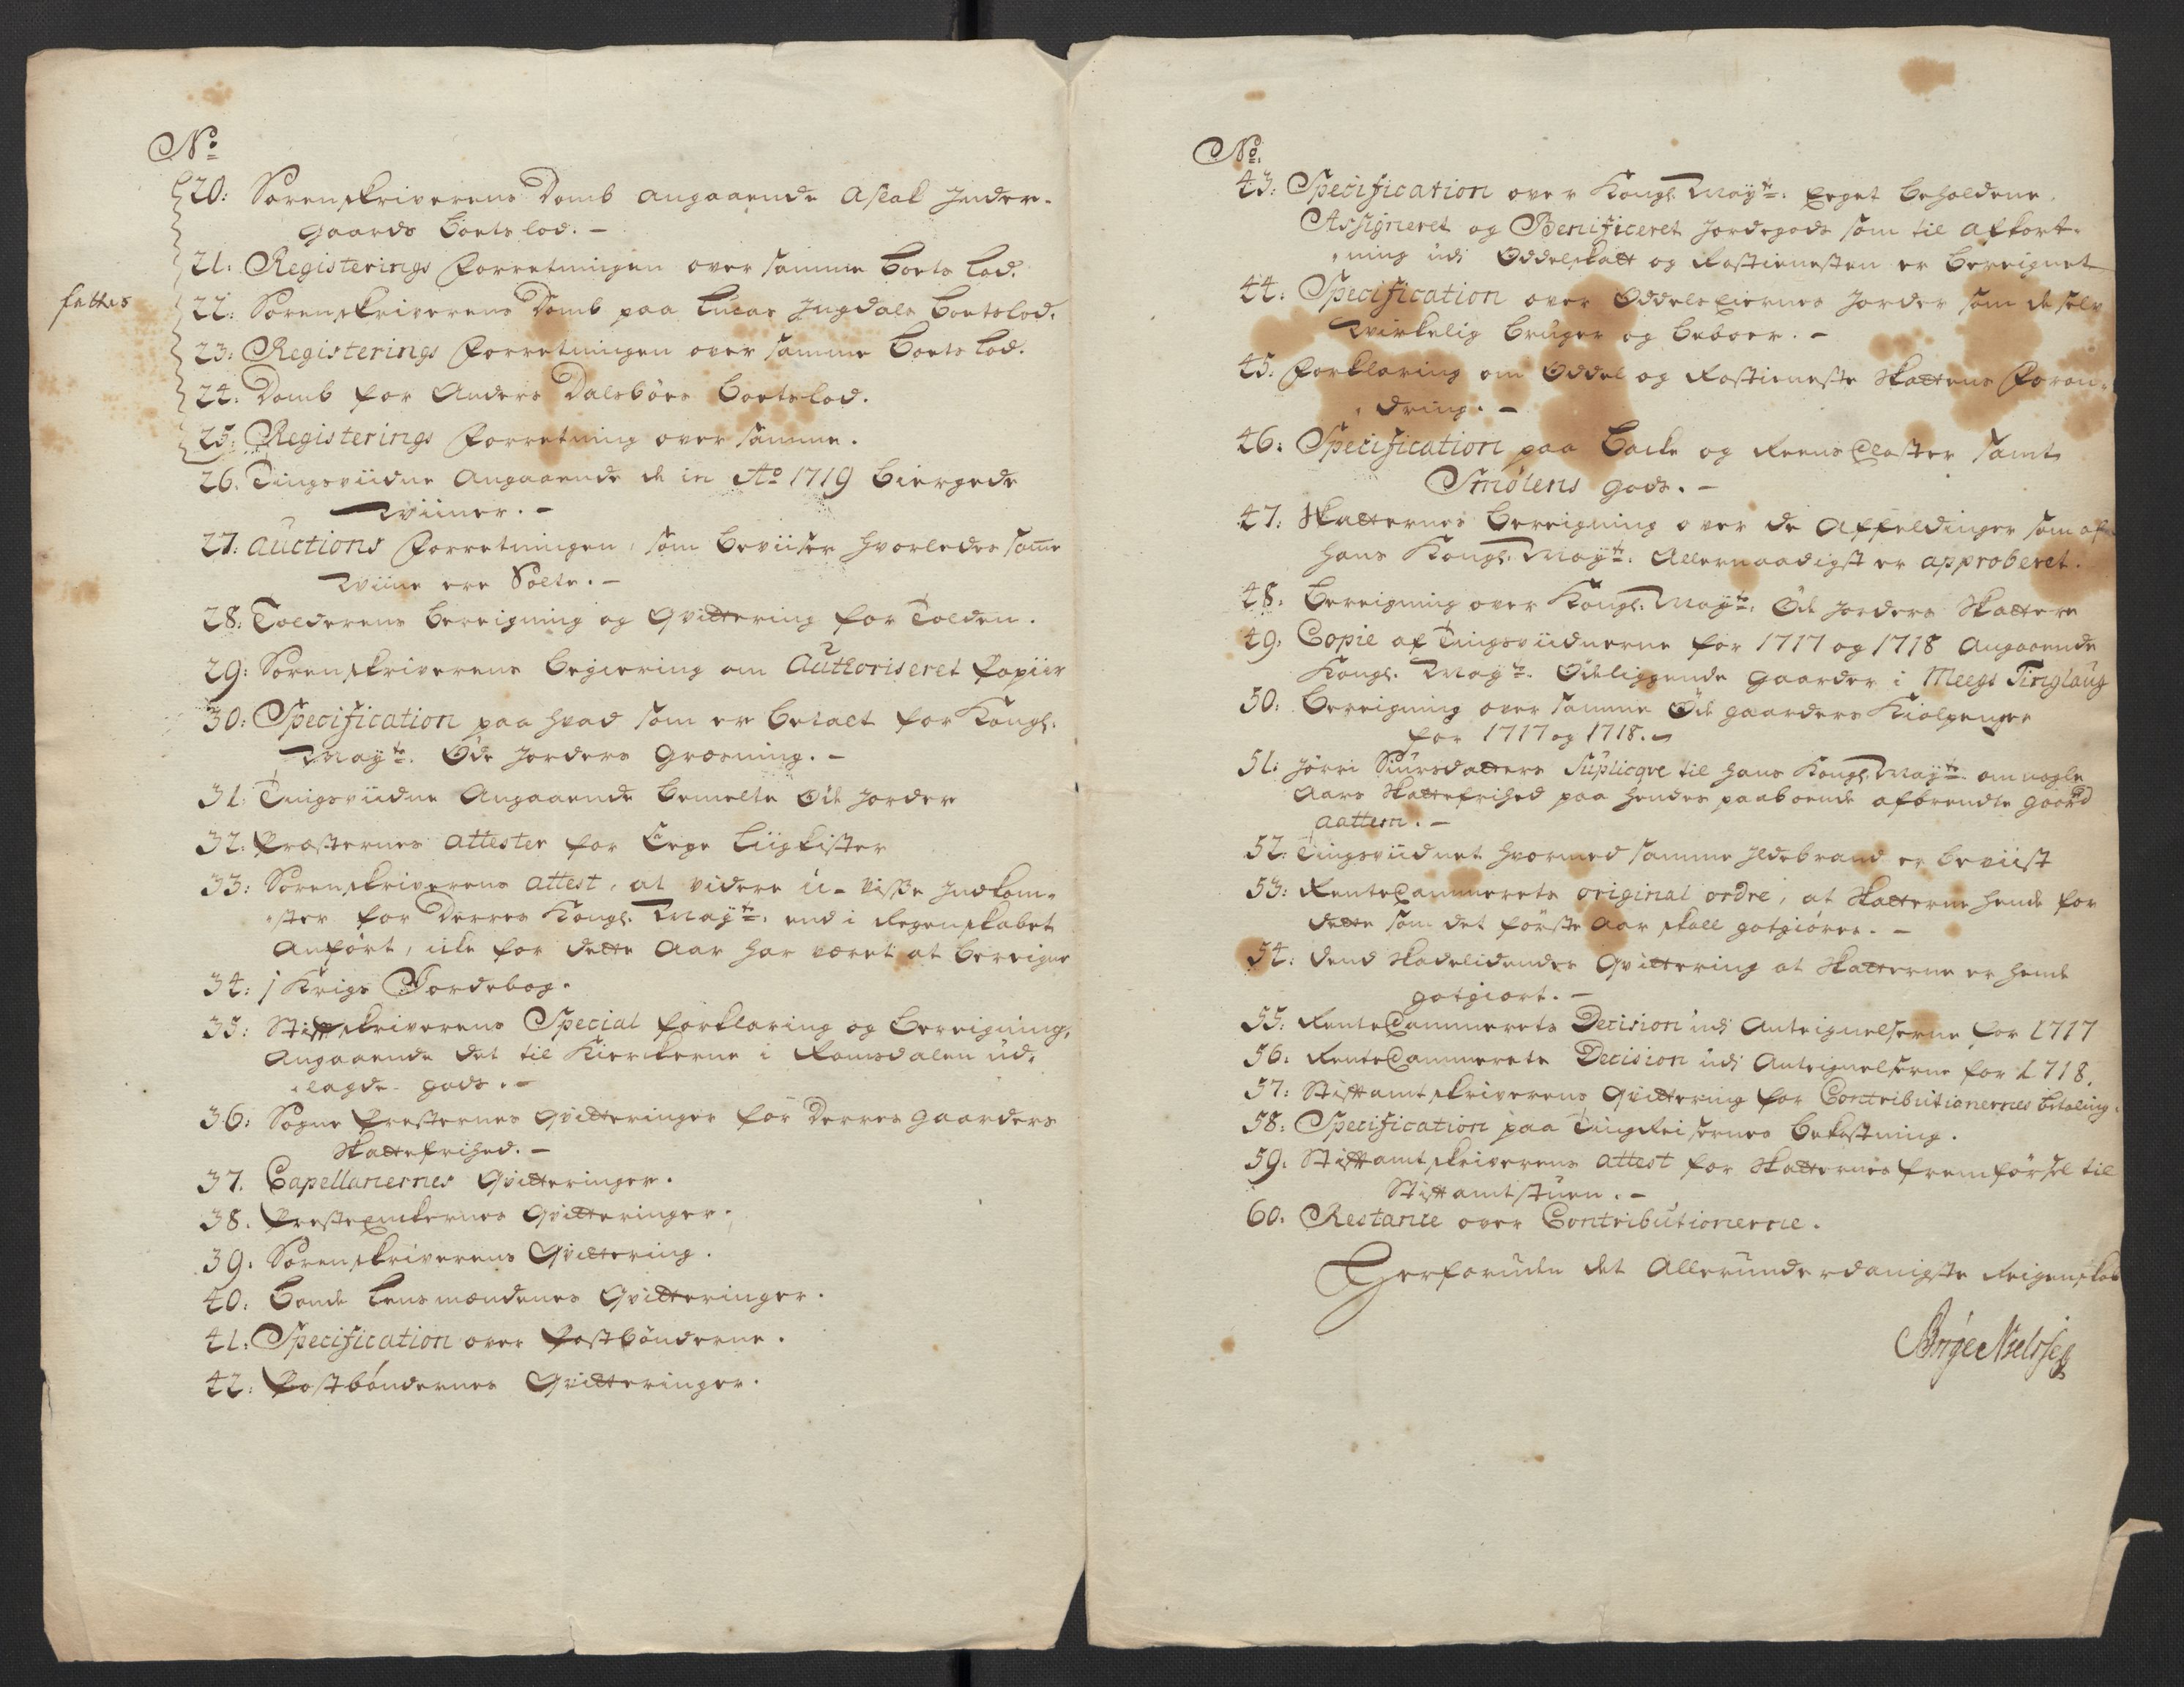 No
20: Sorenskriverens Domb angaaende Aslak Inder-
gaards boets lod. -
21. Registerings Forretningen over samme boets lod.
fattes
22: Sorenskriverens Domb paa Lucas Ingdals boetslod.
23: Registerings Forretningen over samme boets lod.
24. Domb for Anders Dalsböes boetslod.
25: Registerings Forretning over samme.
26. Tingsviidne Angaaende de in Ao 1719 biergede
Wiiner. -
27: Auctions Forretningen, som beviiser hvorledes same
Wiine ere Solte. -
28: Tolderens bereigning og Qvittering for Tolden.
29: Sorenskriverens begiering om Authoriseret Papiir
30: Specification paa hvad som er betalt for Kongl:
Mayts. Øde Jorders Græsning. -
31: Tingsviidne Angaaende bemelte Øde Jorder
32: Præsternes attester for Eege Liigkister
33: Sorenskriverens attest, at videre u-visse Indkom-
-ster for Deres Kongl: Mayts. end i Regenskabet
Anfört, icke for dette Aar har været at bereigne
34: 1 Krigs Jordebog.
35: Stiftskriverens Special forklaring og bereigning,
Angaaende det til Kierkerne i Romsdalen ud-
-lagde gods. -
36: Sogne Presternes Qvitteringer for Derres gaarders
Skattefrihed. -
37. Capellanernes Qvitteringer.
38. PresteEnckernes Qvitteringer.
39. Sorenskriverens Qvittering.
40: bonde Lensmændenes Qvitteringer.
41: Specification over Postbönderne.
42: Postböndernes Qvitteringer.
No.
43: Specification over Kongl: Mayts. Eeget beholdene,
Assigneret og Benificeret Jordegods som til afkort-
-ning udj Oddelskatt og Rostienesten er bereignet
44: Specification over Oddels Eiernes Jorder som de selv
Wirkelig bruger og beboer. -
45: Forklaring om Oddel og Rostieneste Skattens Foran-
-dring. -
46: Specification paa Backe og Reens Closter samt
Smölens gods. -
47: Skatternes bereigning over de Affeldinger som af
Hans Kongl: Mayts. Allernaadigst er approberet.
48. bereigning over Kongl: Mayts. Øde Jorders Skatter
49: Copie af Tingsviidnerne for 1717 og 1718 Angaaende
Kongl: Mayts. Ødeliggende gaarder i Meegs Tinglaug
50: bereigning over samme Øde gaarders Kiolpenger
for 1717 og 1718. -
51: Jörri Siursdatters Suplicqve til Hans Kongl: Mayts. om nogle
Aars Skattefrihed paa hendes paaboende afbrendte gaard
Aattem. -
52: Tingsviidnet hvormed samme Ildebrand er beviist
53: RenteCammerets original ordre, at Skatterne hende for
dette som det förste Aar skall gotgiöres. -
54: Dend Skadelidendes Qvittering at Skatterne er hende
gotgiort. -
55: RenteCammerets Decision udj Anteignelserne for 1717
56: RenteCammerets Decision udj Anteignelserne for 1718.
57: Stiftamtskriverens Qvittering for Contributionernes betaling.
58: Specification paa TingReisernes bekostning.
59. Stiftamtskriverens attest for Skatternes fremförsel til
Stiftamtstuen. -
60. Restance over Contributionerne.
Herforuden det Allerunderdanigste Reigenskab
Börge Nielssen